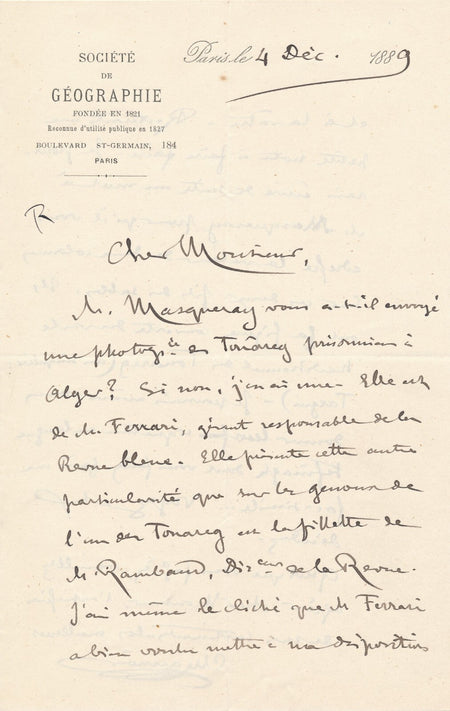 SOCIÉTÉ
DE
GÉOGRAPHIE
FONDÉE EN 1821
Reconnue d'utilité publique en 1827
BOULEVARD ST-GERMAIN, 184
PARIS
Paris, le 4 Déc. 1889
R
Cher Monsieur,
M. Masqueray vous a-t-il envoyé
une photogie des Touareg prisonniers à
Alger? Si non, j'en ai une. Elle est
de M. Ferrari, gérant responsable de la
Revue bleue. Elle présente cette autre
particularité que sur les genoux de
l'un des Touareg est la fillette de
M. Rambaud, Direur de la Revue.
J'ai même le cliché que M Ferrari
a bien voulu mettre à ma disposition